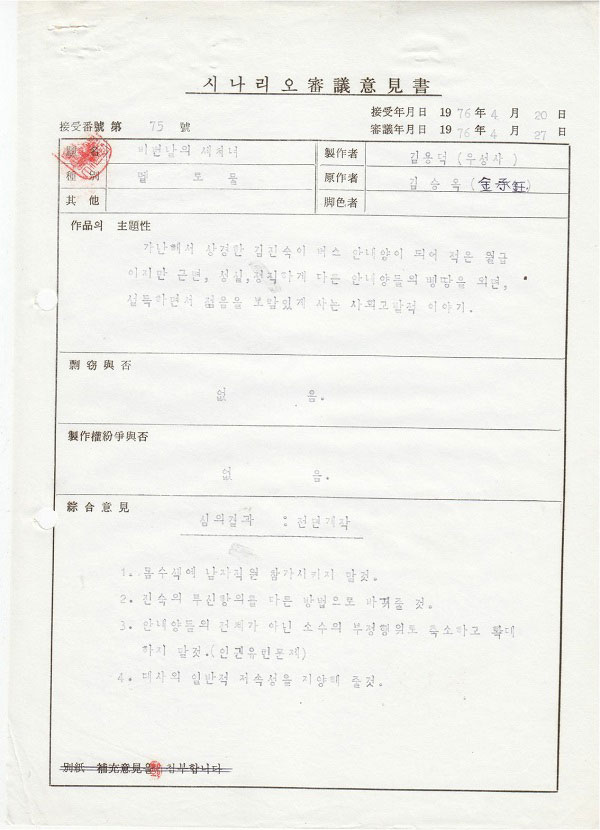 시나리오審議意見書
接受年月日 1976年 4月 20日
接受番號 第 75 號
審議年月日 1976年 4月 27日
題名 비번날의 세처녀
製作者 김용덕 (우성사)
種別 멜로물
原作者 김승옥 (金承鈺)
其他
脚色者
作品의 主題性
가난해서 상경한 김진숙이 버스 안내양이 되어 적은 월급
이지만 근면, 성실,정직하게 다른 안내양들의 삥땅을 외면,
설득하면서 젊음을 보람있게 사는 사회고발적 이야기.
剽窃與否
없 음.
製作權紛爭與否
없 음.
綜合意見
심의결과 : 전면개작
1. 몸수색에 남자직원 참가시키지 말것.
2. 진숙의 투신항의를 다른 방법으로 바꿔줄 것.
3. 안내양들의 전체가 아닌 소수의 부정행위로 축소하고 확대
하지 말것.(인권유린문제)
4. 대사의 일반적 저속성을 지양해 줄것.
別紙 補充意見을 첨부합니다